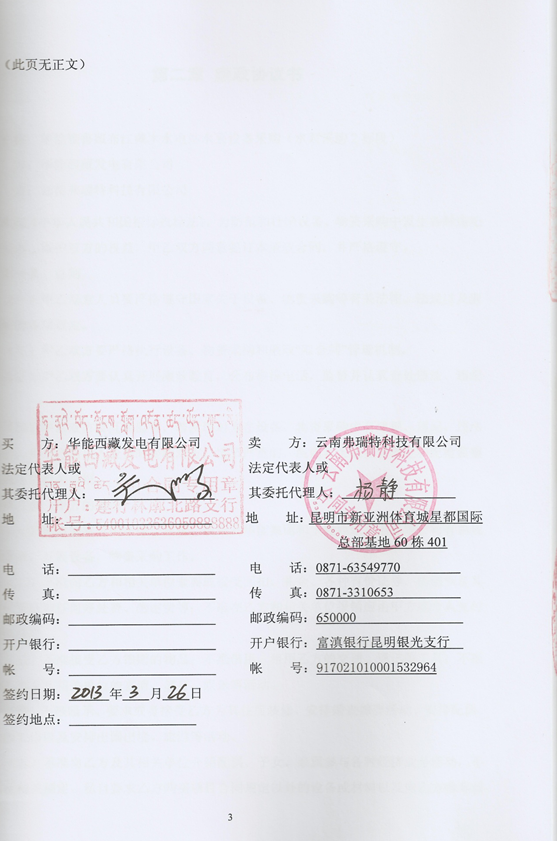 （此页无正文）
买　　方：华能西藏发电有限公司
法定代表人或
其委托代理人：
地　　址：
电　　话：
传　　真：
邮政编码：
开户银行：
帐　　号：
签约日期：2013 年 3 月 26 日
签约地点：
华能西藏发电有限公司
卖　　方：云南弗瑞特科技有限公司
法定代表人或
其委托代理人：杨静
地　　址：昆明市新亚洲体育城星都国际
总部基地 60 栋 401
电　　话：0871-63549770
传　　真：0871-3310653
邮政编码：650000
开户银行：富滇银行昆明银光支行
帐　　号：917021010001532964
云南弗瑞特科技有限公司
3